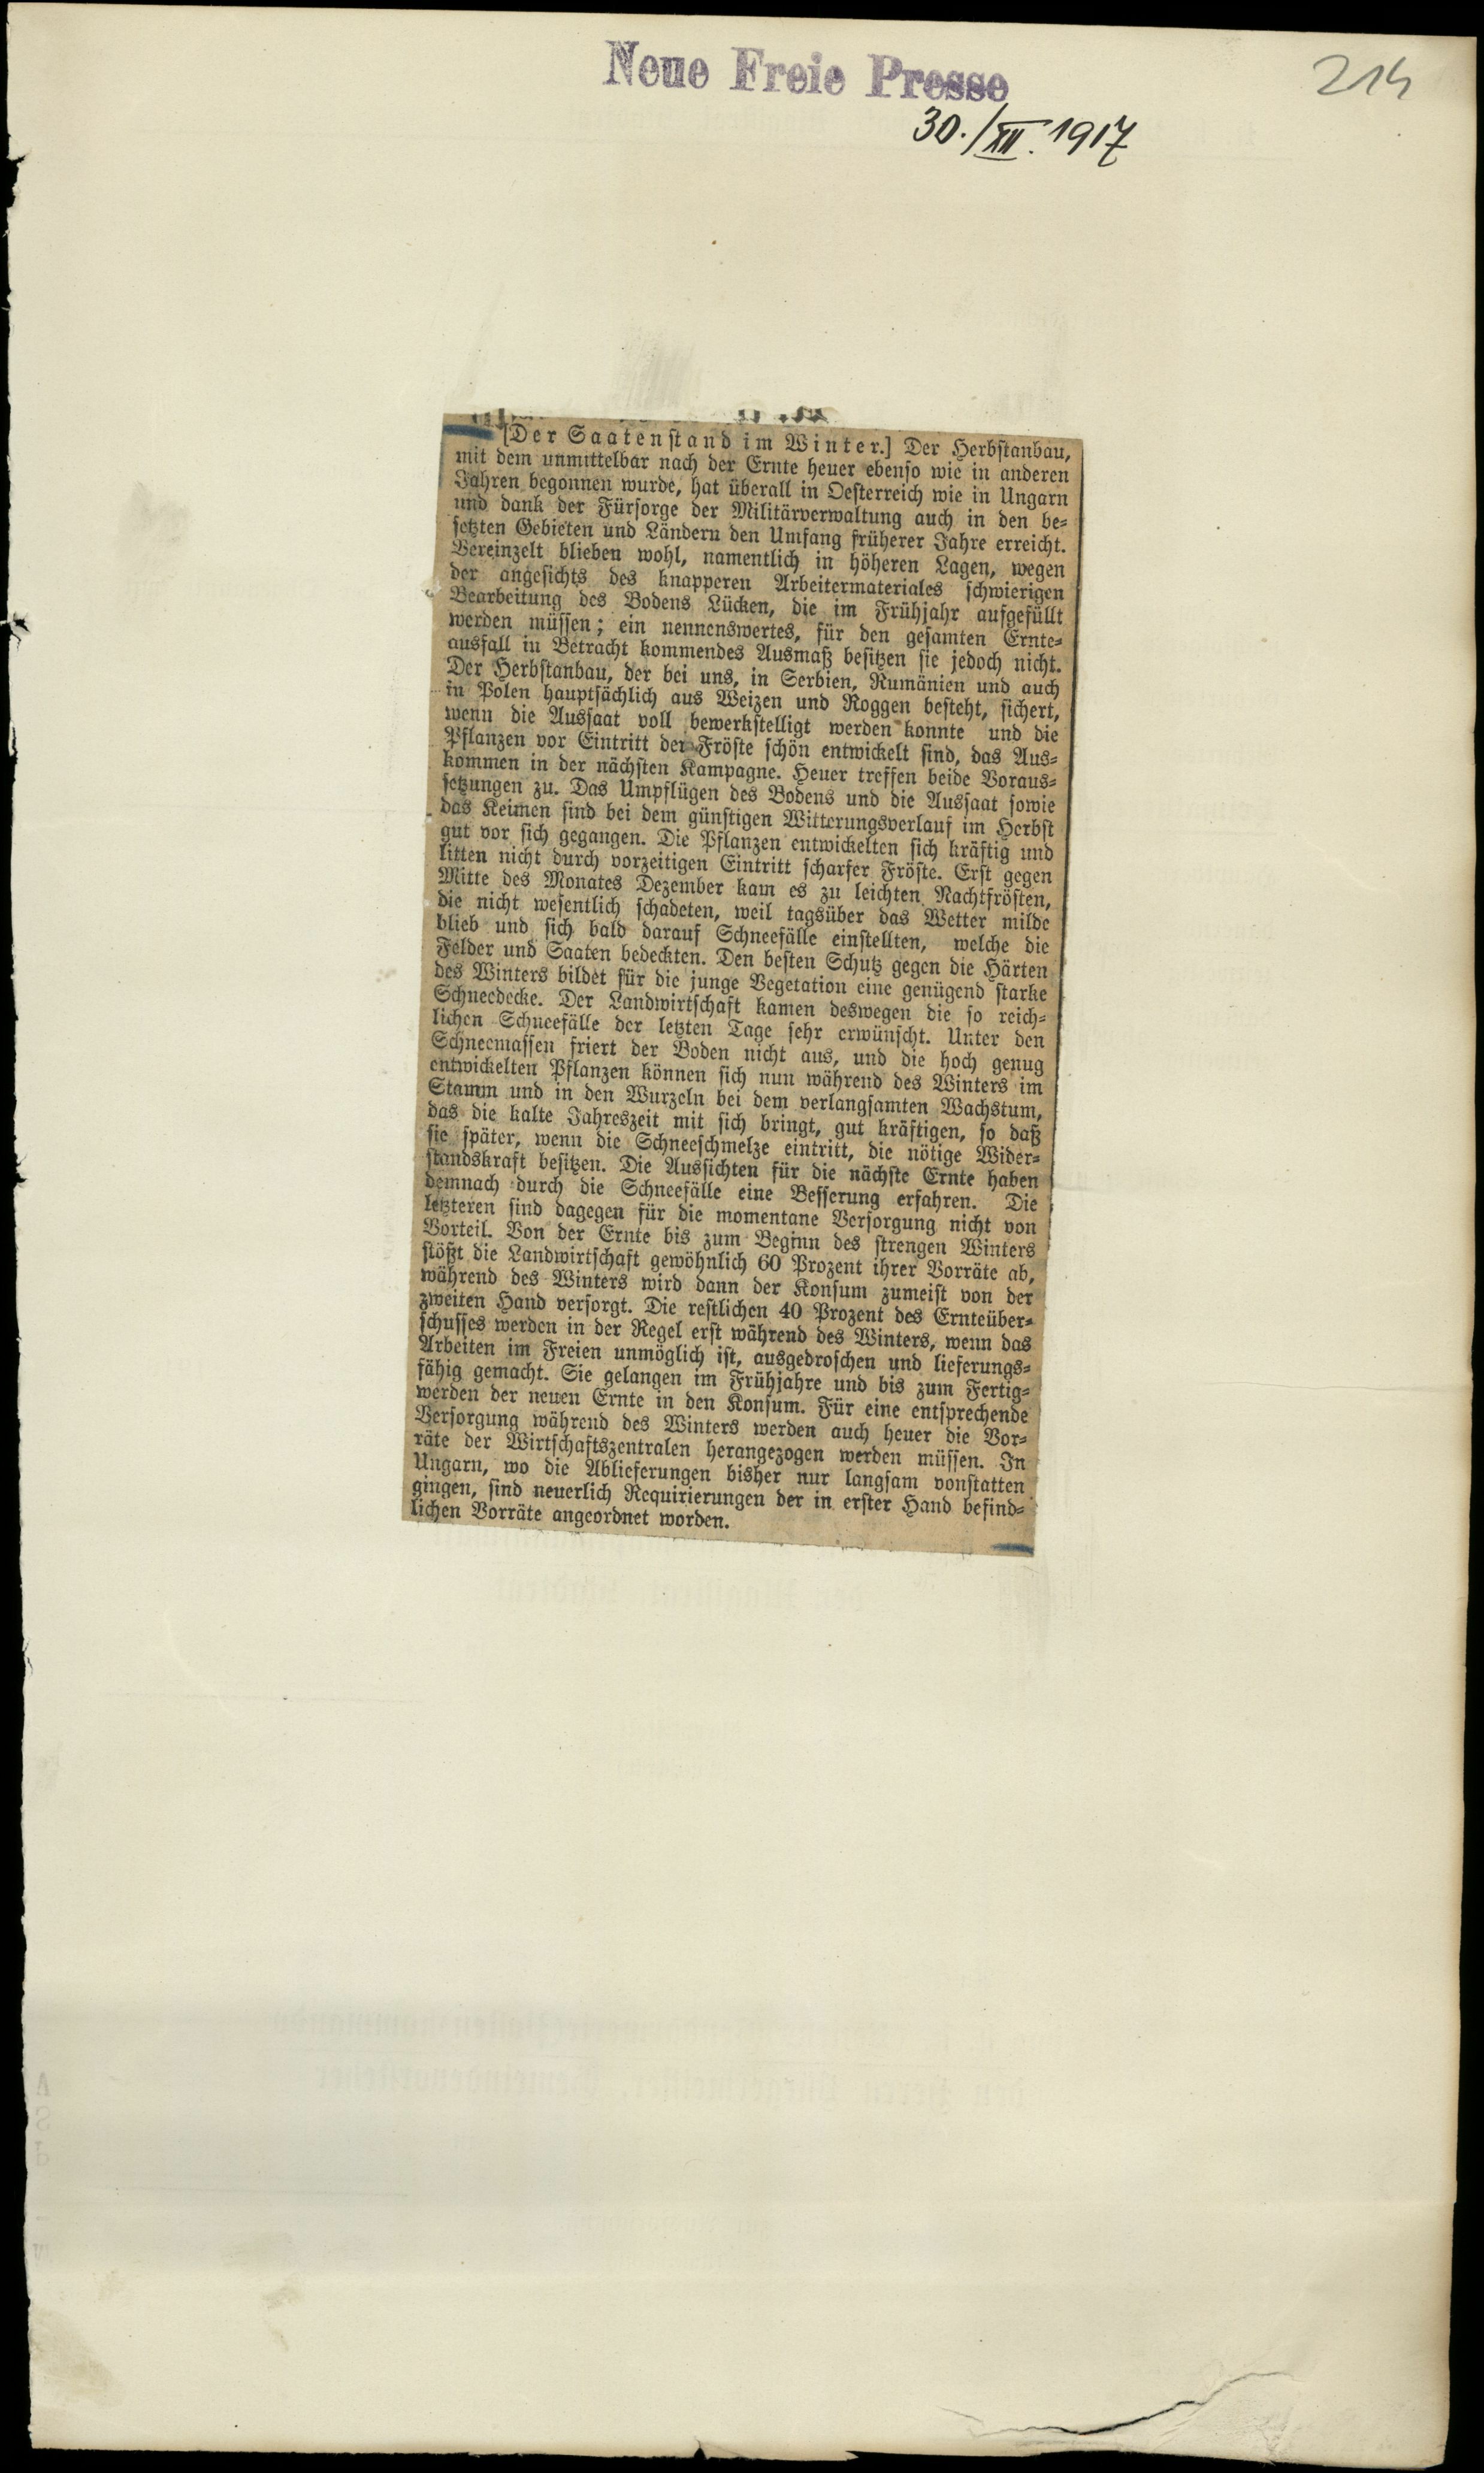 Neue Freie Presse
214
30./XII. 1917
[Der Saatenstand im Winter.] Der Herbstanbau,
mit dem unmittelbar nach der Ernte heuer ebenso wie in anderen
Jahren begonnen wurde, hat überall in Oesterreich wie in Ungarn
und dank der Fürsorge der Militärverwaltung auch in den be-
setzten Gebieten und Ländern den Umfang früherer Jahre erreicht.
Vereinzelt blieben wohl, namentlich in höheren Lagen, wegen
der angesichts des knapperen Arbeitermateriales schwierigen
Bearbeitung des Bodens Lücken, die im Frühjahr aufgefüllt
werden müssen; ein nennenswertes, für den gesamten Ernte-
ausfall in Betracht kommendes Ausmaß besitzen sie jedoch nicht.
Der Herbstanbau, der bei uns, in Serbien, Rumänien und auch
in Polen hauptsächlich aus Weizen und Roggen besteht, sichert,
wenn die Aussaat voll bewerkstelligt werden konnte und die
Pflanzen vor Eintritt der Fröste schön entwickelt sind, das Aus-
kommen in der nächsten Kampagne. Heuer treffen beide Voraus-
setzungen zu. Das Umpflügen des Bodens und die Aussaat sowie
das Keimen sind bei dem günstigen Witterungsverlauf im Herbst
gut vor sich gegangen. Die Pflanzen entwickelten sich kräftig und
litten nicht durch vorzeitigen Eintritt scharfer Fröste. Erst gegen
Mitte des Monates Dezember kam es zu leichten Nachtfrösten,
die nicht wesentlich schadeten, weil tagsüber das Wetter milde
blieb und sich bald darauf Schneefälle einstellten, welche die
Felder und Saaten bedeckten. Den besten Schutz gegen die Härten
des Winters bildet für die junge Vegetation eine genügend starke
Schneedecke. Der Landwirtschaft kamen deswegen die so reich-
lichen Schneefälle der letzten Tage sehr erwünscht. Unter den
Schneemassen friert der Boden nicht aus, und die hoch genug
entwickelten Pflanzen können sich nun während des Winters im
Stamm und in den Wurzeln bei dem verlangsamten Wachstum,
das die kalte Jahreszeit mit sich bringt, gut kräftigen, so daß
sie später, wenn die Schneeschmelze eintritt, die nötige Wider-
standskraft besitzen. Die Aussichten für die nächste Ernte haben
demnach durch die Schneefälle eine Besserung erfahren. Die
letzteren sind dagegen für die momentane Versorgung nicht von
Vorteil. Von der Ernte bis zum Beginn des strengen Winters
stößt die Landwirtschaft gewöhnlich 60 Prozent ihrer Vorräte ab,
während des Winters wird dann der Konsum zumeist von der
zweiten Hand versorgt. Die restlichen 40 Prozent des Ernteüber-
schusses werden in der Regel erst während des Winters, wenn das
Arbeiten im Freien unmöglich ist, ausgedroschen und lieferungs-
fähig gemacht. Sie gelangen im Frühjahre und bis zum Fertig-
werden der neuen Ernte in den Konsum. Für eine entsprechende
Versorgung während des Winters werden auch heuer die Vor-
räte der Wirtschaftszentralen herangezogen werden müssen. In
Ungarn, wo die Ablieferungen bisher nur langsam vonstatten
gingen, sind neuerlich Requirierungen der in erster Hand befind-
lichen Vorräte angeordnet worden.